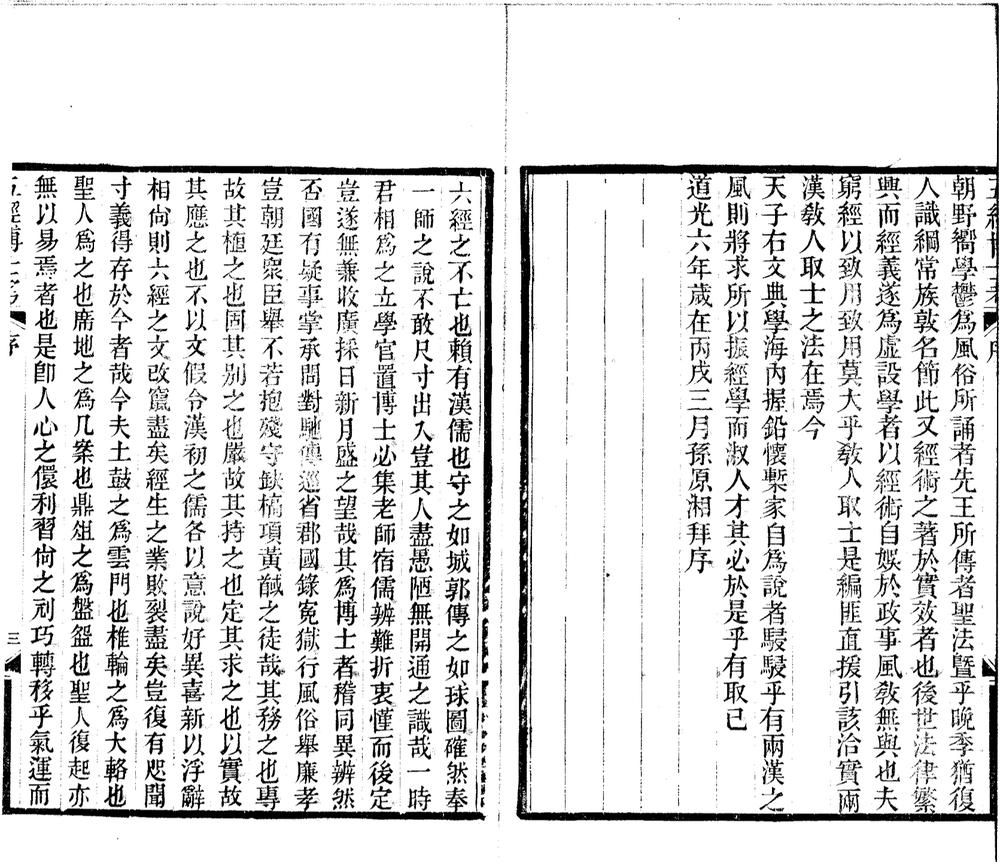 五經博士考 序
朝野嚮學鬱爲風俗所誦者先王所傳者聖法暨乎晚季猶復
人識綱常族敦名節此又經術之著於實效者也後世法律繁
興而經義遂爲虛設學者以經術自娛於政事風敎無與也夫
窮經以致用致用莫大乎敎人取士是編匪直援引該洽實兩
漢敎人取士之法在焉今
天子右文典學海內握鉛懷槧家自爲說者駸駸乎有兩漢之
風則將求所以振經學而淑人才其必於是乎有取已
道光六年歲在丙戌三月孫原湘拜序
六經之不亡也賴有漢儒也守之如城郭傳之如球圖確然奉
一師之說不敢尺寸出入豈其人盡愚陋無開通之識哉一時
君相爲之立學官置博士必集老師宿儒辨難折衷慬而後定
豈遂無兼收廣採日新月盛之望哉其爲博士者稽同異辨然
否國有疑事掌承問對馳傳巡省郡國錄寃獄行風俗舉廉孝
豈朝廷衆臣舉不若抱殘守缺槁項黃馘之徒哉其務之也專
故其植之也固其別之也嚴故其持之也定其求之也以實故
其應之也不以文假令漢初之儒各以意說好異喜新以浮辭
相尙則六經之文改竄盡矣經生之業敗裂盡矣豈復有咫聞
寸義得存於今者哉今夫土鼓之爲雲門也椎輪之爲大輅也
聖人爲之也席地之爲几案也鼎俎之爲盤盌也聖人復起亦
無以易焉者也是卽人心之儇利習尙之刓巧轉移乎氣運而
五經博士考 序 三